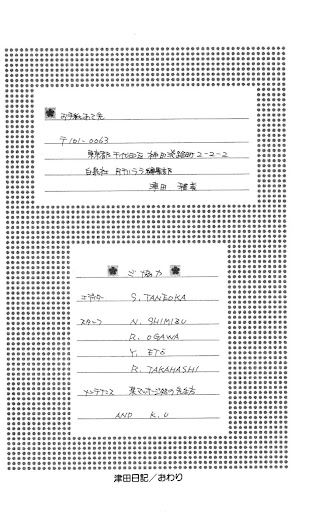 お手紙あて先
〒101-0063
東京都千代田区神田淡路町2-2-2
白泉社
津田 雅美
ご協力
S. TANEOKA
スタッフ N. SHIMIZU
R. OGAWA
Y. ETŌ
R. TAKAHASHI
メンテナンス
AND K.U
津田日記/おわり